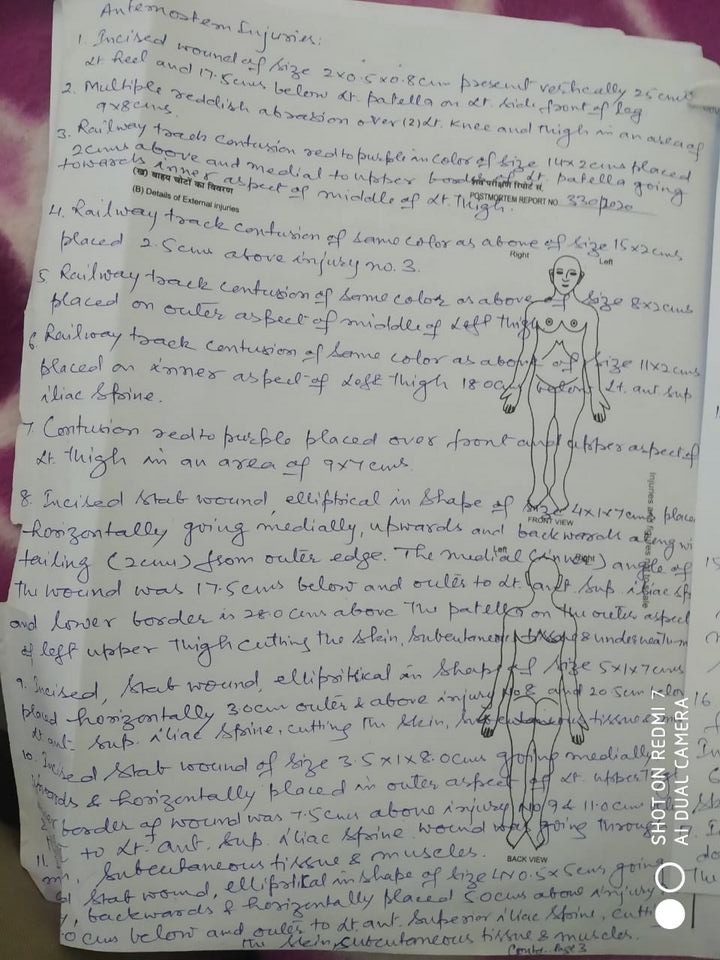 Antemortem Injuries:
1. Incised wound of size 2x0.5x0.8cm present vertically 25cms
Lt heel and 17.5cms below Lt. patella on Lt. side front of leg
2. Multiple reddish abrasion over (2) Lt. Knee and thigh in an area of
9x8cms.
3. Railway track contusion red to purple in color of size 14x2cms placed
2cms above and medial to upper border of Lt. patella going
towards inner aspect of middle of Lt. Thigh.
(ख) बाह्य चोटों का विवरण
(B) Details of External Injuries
शव परीक्षण रिपोर्ट सं.
POSTMORTEM REPORT NO. 330/2020
4. Railway track contusion of same color as above of size 15x2cms
placed 2.5cms above injury no. 3.
Right Left
5. Railway track contusion of same color as above of size 8x2cms
placed on outer aspect of middle of Left Thigh
6. Railway track contusion of same color as above of size 11x2cms
placed on inner aspect of Left Thigh 18.0cm below Lt. ant. sup
iliac spine.
7. Contusion red to purple placed over front and upper aspect of
Lt. thigh in an area of 9x7cms.
8. Incised stab wound, elliptical in shape of size 4x1x7cms place
horizontally going medially, upwards and backwards along wi
FRONT VIEW
tailing (2cms) from outer edge. The medial (inner) angle of
Left Right
the wound was 17.5cms below and outer to Lt. ant. sup. iliac sp
and lower border is 28.0cms above the patella on the outer aspect
of left upper thigh cutting the skin, subcutaneous tissue & underneath m
Injuries and figures not to scale
9. Incised, stab wound, elliptical in shape of size 5x1x7cms
placed horizontally 3.0cm outer & above injury no 8 and 20.5cm below
Lt ant. sup. iliac spine, cutting the skin, subcutaneous tissue
10. Incised stab wound of size 3.5x1x8.0cms going medially
wards & horizontally placed in outer aspect of Lt. upper
border of wound was 7.5cms above injury no 9 & 11.0cm
to Lt. ant. sup. iliac spine. wound was going through
subcutaneous tissue & muscles.
BACK VIEW
11.
stab wound, elliptical in shape of size 4x0.5x5cms going
backwards & horizontally placed 5.0cms above injury
.0cms below and outer to Lt. ant. superior iliac spine, cutti
the skin, subcutaneous tissue & muscles.
Contd. Page 3
16
SHOT ON REDMI 7
AI DUAL CAMERA